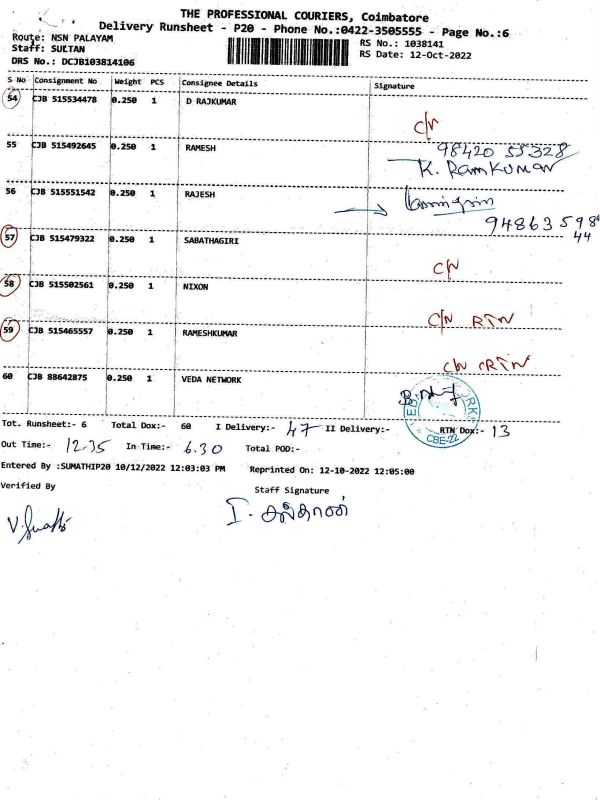 THE PROFESSIONAL COURIERS, Coimbatore
Delivery Runsheet - P20 - Phone No.:0422-3505555 - Page No.:6
Route: NSN PALAYAM
RS No.: 1038141
Staff: SULTAN
RS Date: 12-Oct-2022
DRS No.: DCJB103814106
S No Consignment No Weight PCS Consignee Details Signature
54 CJB 515534478 0.250 1 D RAJKUMAR
C/N
55 CJB 515492645 0.250 1 RAMESH 98420 55328
K. RAMKUMAR
56 CJB 515551542 0.250 1 RAJESH
94863 598
44
57 CJB 515479322 0.250 1 SABATHAGIRI
C/N
58 CJB 515502561 0.250 1 NIXON
C/N RTN
59 CJB 515465557 0.250 1 RAMESHKUMAR
C/N RTN
60 CJB 88642875 0.250 1 VEDA NETWORK
CBE-22
Tot. Runsheet:- 6 Total Dox:- 60 I Delivery:- 47 II Delivery:- RTN Dox:- 13
Out Time:- 12.35 In Time:- 6.30 Total POD:-
Entered By :SUMATHIP20 10/12/2022 12:03:03 PM Reprinted On: 12-10-2022 12:05:00
Verified By Staff Signature
I. சுல்தான்